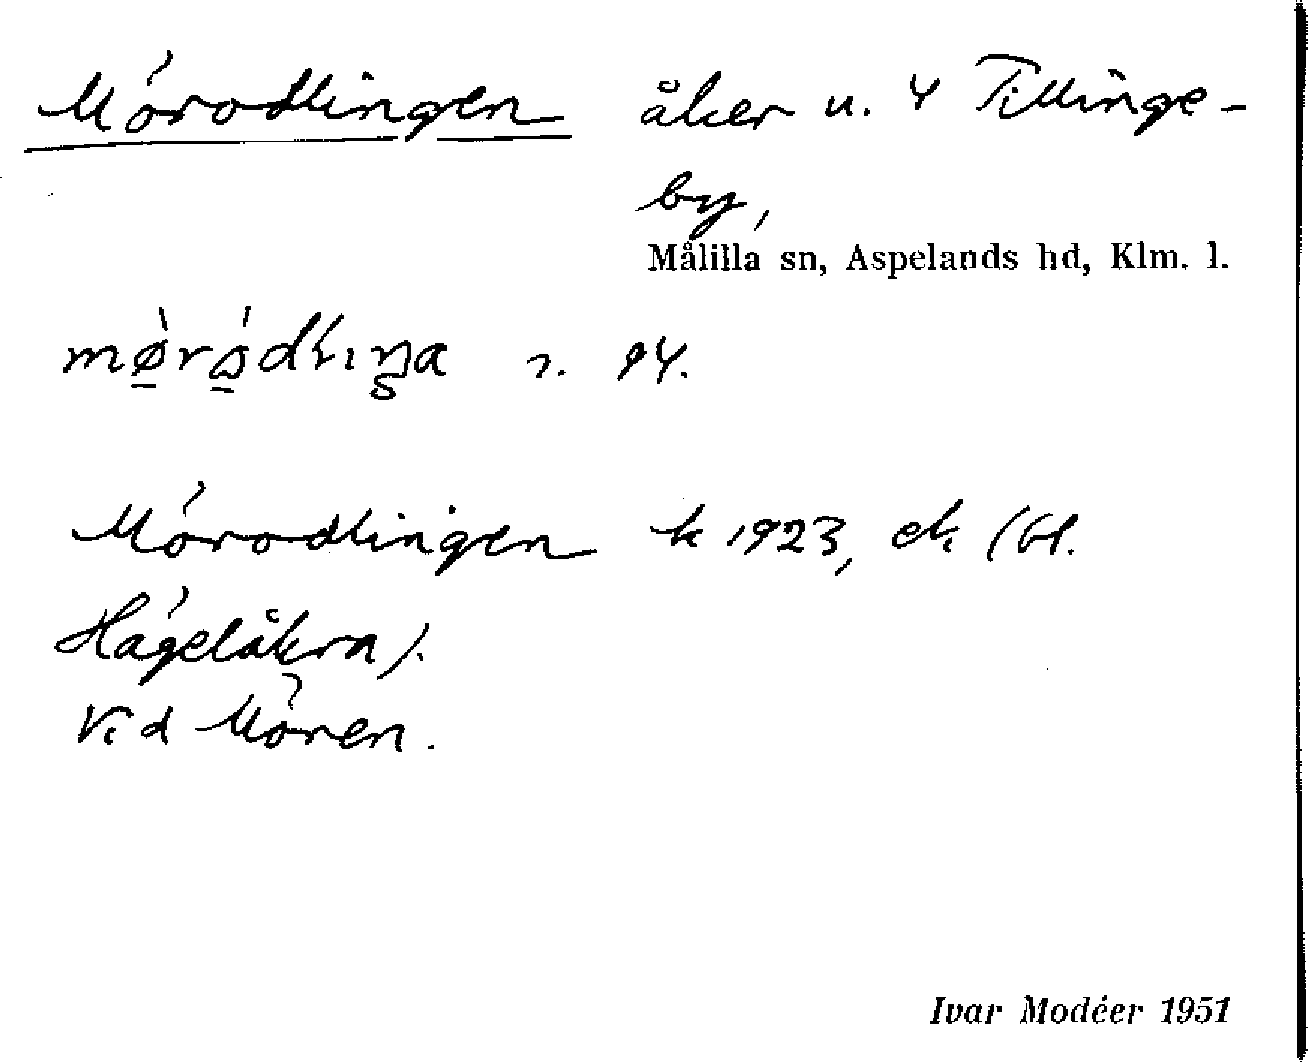 Mörodlingen åker u. 4 Tillinge-
by,
Målilla sn, Aspelands hd, Klm. l.
Mörodlingen k 1923, ek (bl.
Hagelåkra).
Vid Mören.
Ivar Modéer 1951